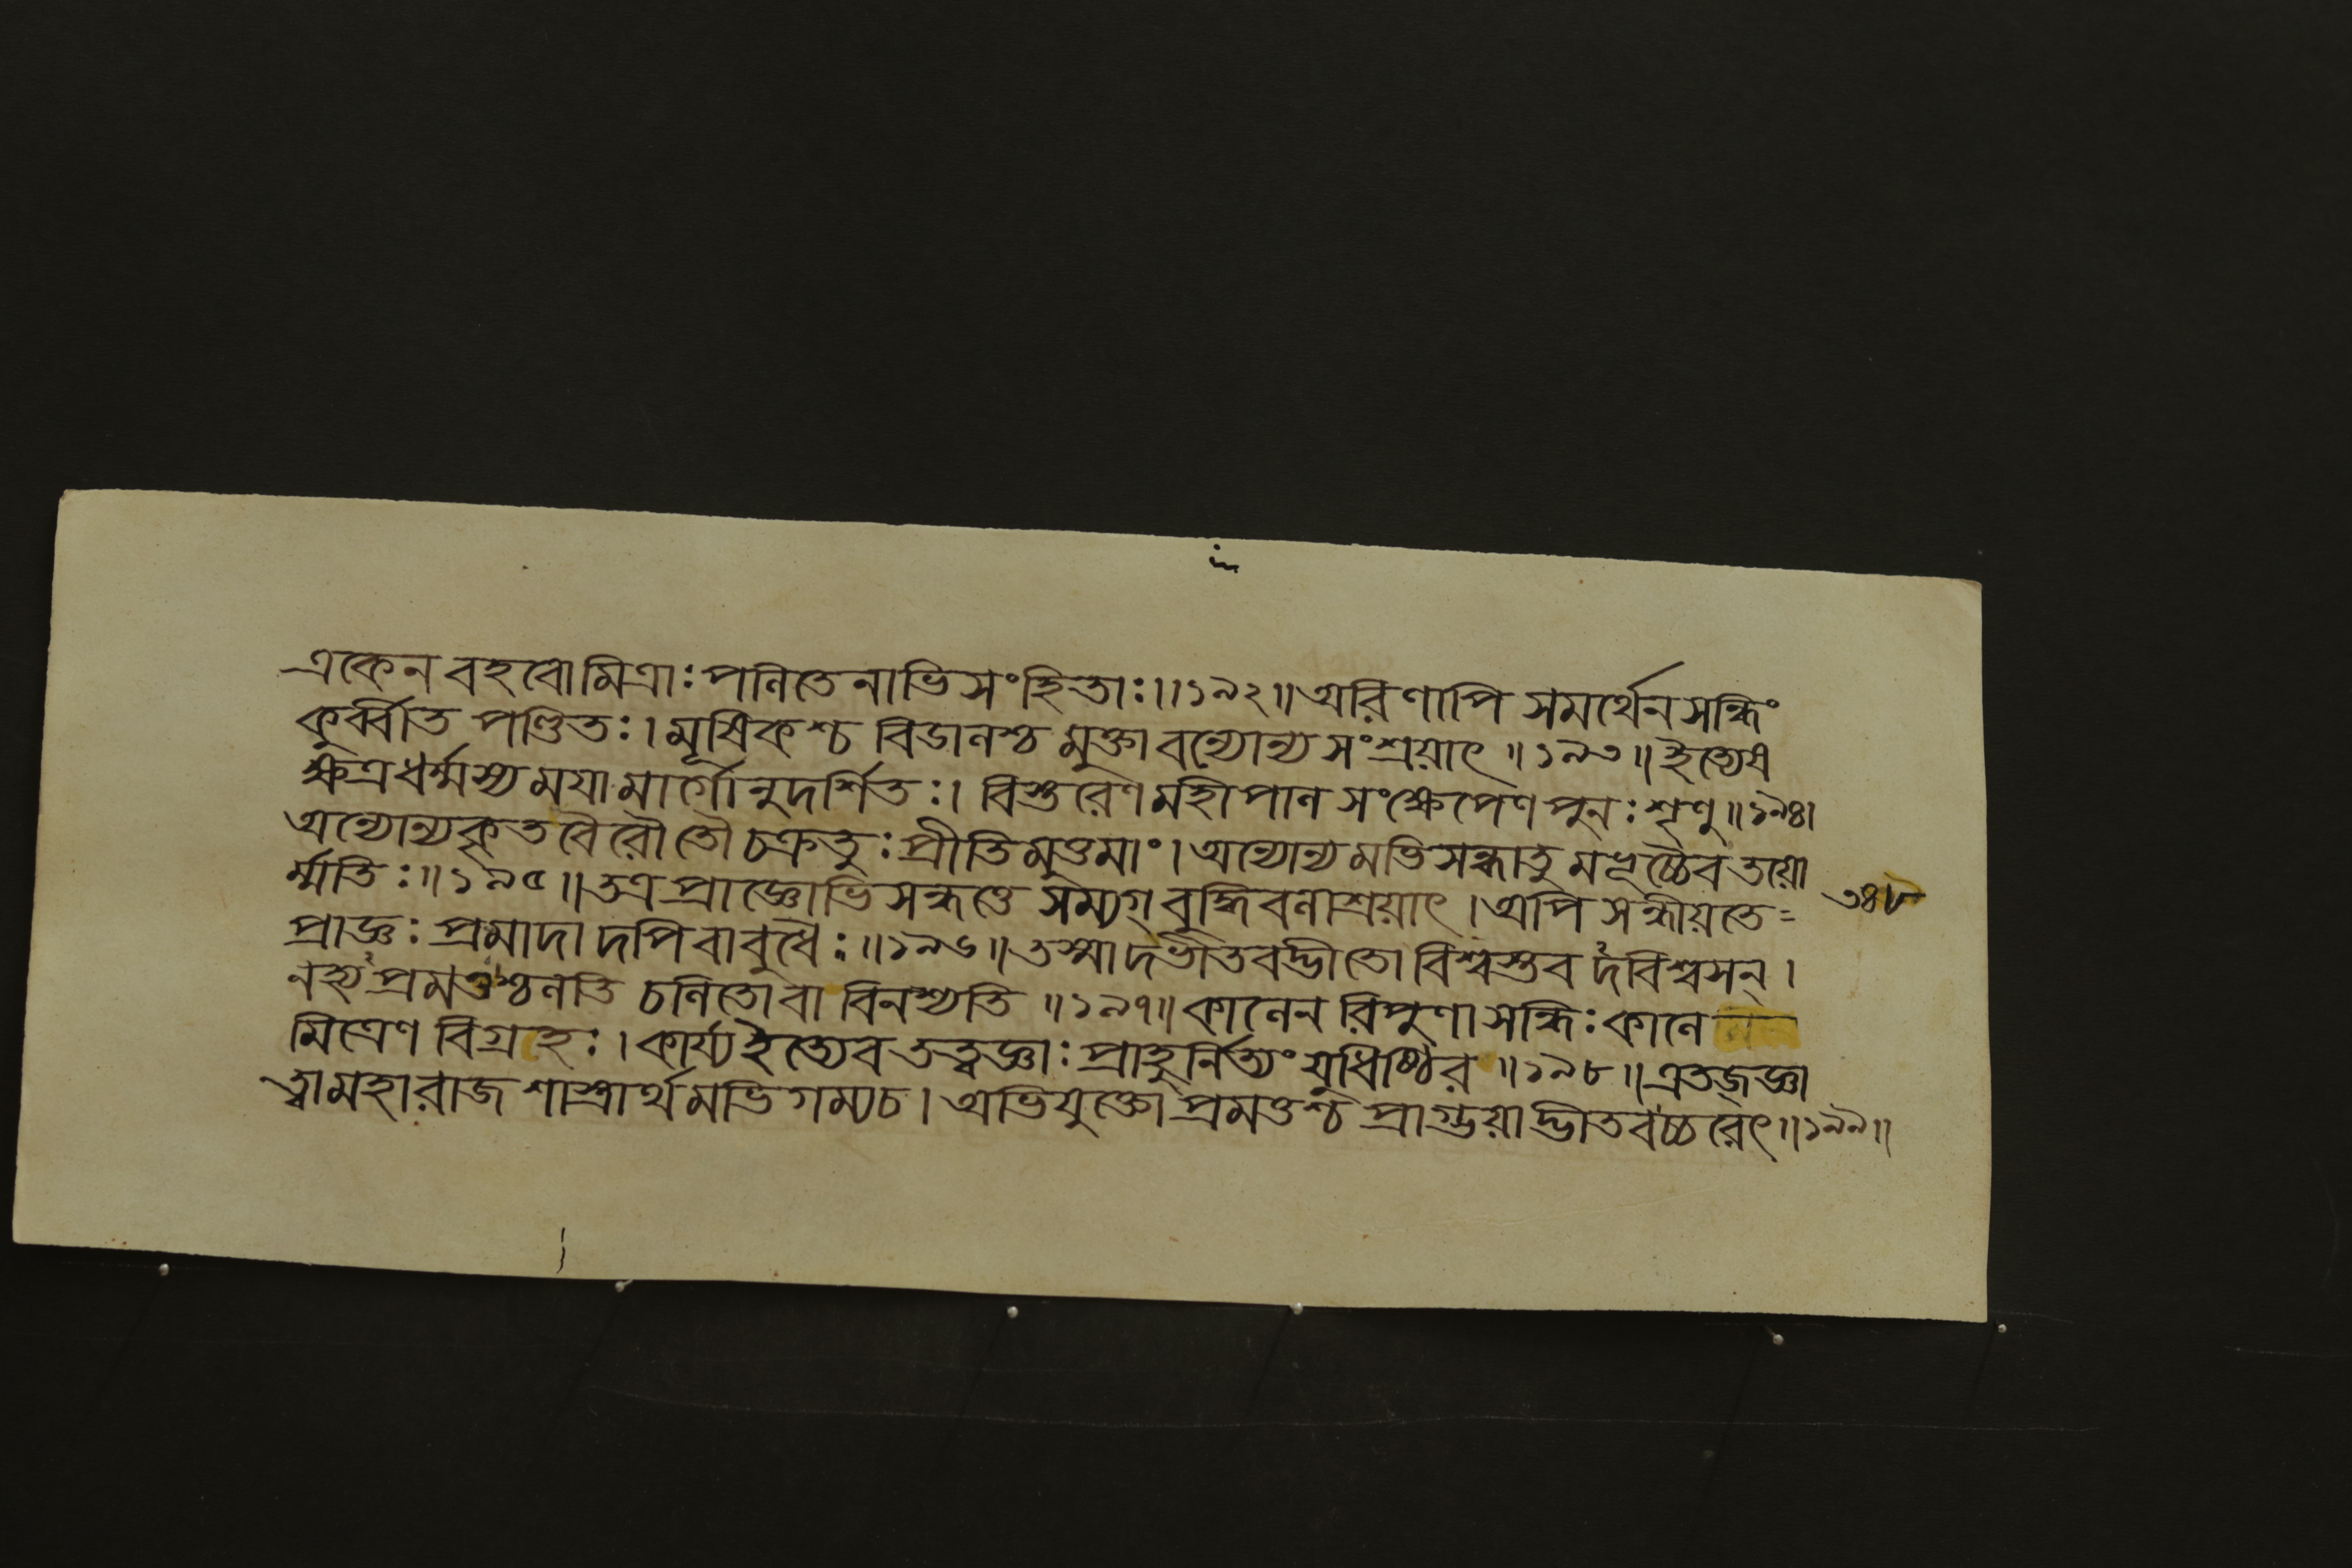 একেন বহবো মিত্রাঃ পলিতেনাভিসংহিতাঃ।।১৯২॥ অরিণাপি সমর্থেন সন্ধিং
কুর্ব্বীত পণ্ডিতঃ। মূষিকশ্চ বিডালশ্চ মুক্তাবন্যোন্যসংশ্রয়াৎ॥১৯৩॥ ইত্যেষ
ক্ষত্রধর্ম্মস্য ময়া মার্গোনুদর্শিতঃ। বিস্তরেণ মহীপাল সংক্ষেপেণ পুনঃ শৃণু॥১৯৪।
অন্যোন্যকৃতবৈরৌ তৌ চক্রতুঃ প্রীতিমুত্তমাং। অন্যোন্যমভিসন্ধাতুমভূচ্চৈব তয়ো
র্ম্মতিঃ॥১৯৫॥ তত্র প্রাজ্ঞোভিসন্ধত্তে সম্যগ্‌বুদ্ধিবলাশ্রয়াৎ। অপি সন্ধীয়তে= ৩৪৮
প্রাজ্ঞঃ প্রমাদাদপি বাবুধৈঃ॥১৯৬॥ তস্মাদভীতবদ্ভীতো বিশ্বস্তবদবিশ্বসন্।
নহ্যপ্রমত্তশ্চলতি চলিতো বা বিনশ্যতি॥১৯৭॥ কালেন রিপুণা সন্ধিঃ কালে
মিত্রেণ বিগ্রহঃ। কার্য্য ইত্যেব তত্ত্বজ্ঞাঃ প্রাহুর্নিত্যং যুধিষ্ঠির॥১৯৮॥ এতজ্‌জ্ঞা
ত্বা মহারাজ শাস্ত্রার্থমভিগম্য চ। অভিযুক্তো প্রমত্তশ্চ প্রাগ্ভয়াদ্ভীতবচ্চরেৎ॥১৯৯॥